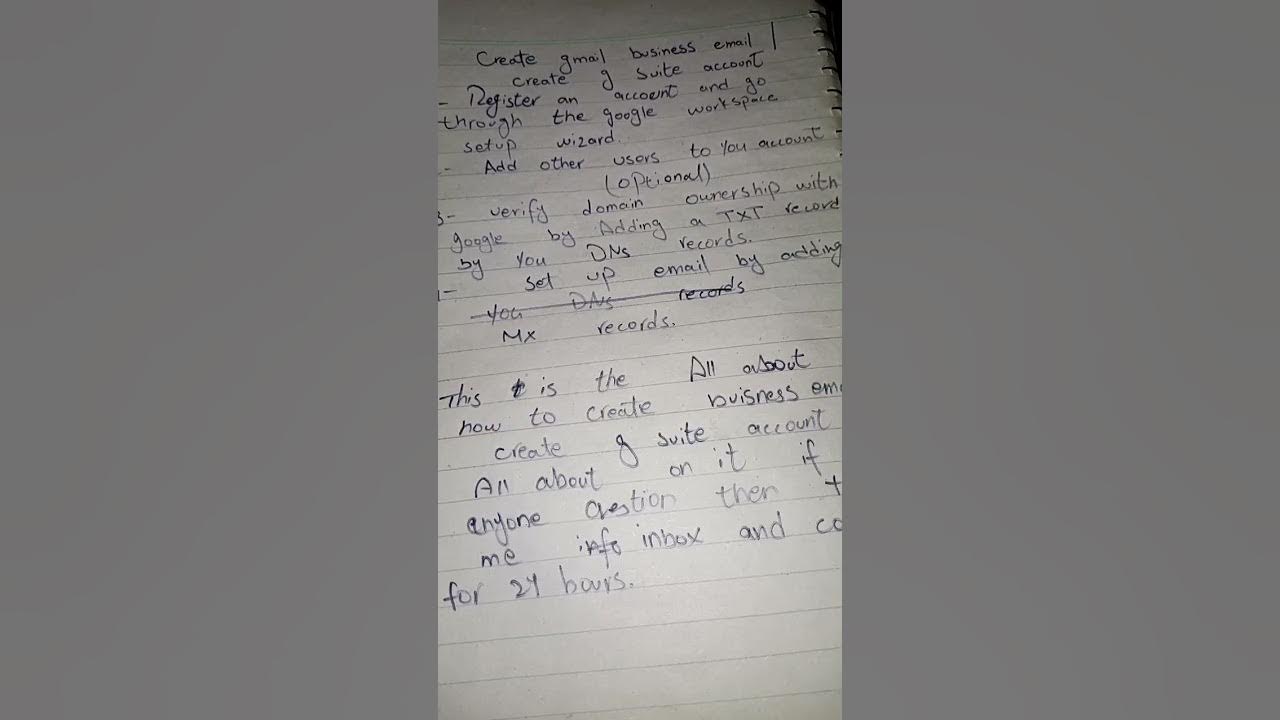 Create gmail business email |
create g suite account
- Register an account and go
through the google workspace
setup wizard.
- Add other users to you account
(optional)
3- verify domain ownership with
google by Adding a TXT record
by you DNs records.
- Set up email by adding
you DNs records
Mx records.
This is the All about
how to create buisness ema
create g suite account
All about on it if
anyone question then t
me info inbox and co
for 24 hours.